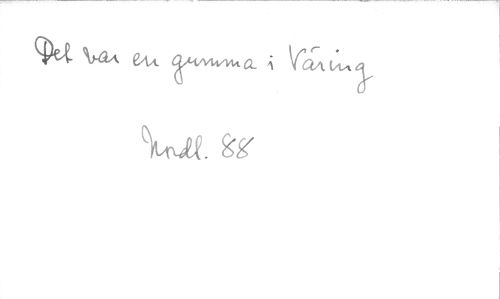 Det var en gumma i Väring
Nordl. 88